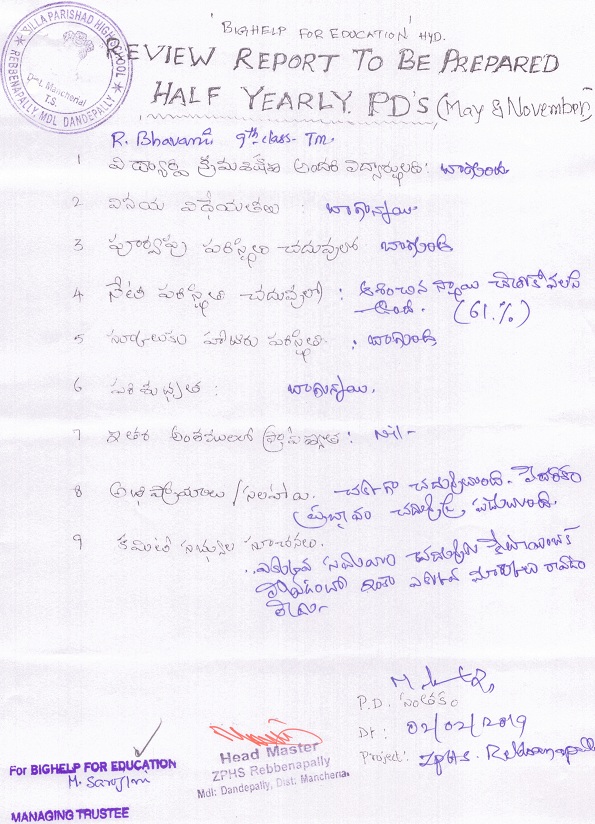 ZILLA PARISHAD HIGH SCHOOL
REBBENAPALLY, MDL DANDEPALLY
Dist. Mancherial
T.S.
'BIGHELP FOR EDUCATION' HYD.
REVIEW REPORT TO BE PREPARED
HALF YEARLY. PD'S (May & November)
R. Bhavani 9th class - Tm.
1 విద్యార్థి క్రమశిక్షణ అందరి విద్యార్థులతో : బాగుంది
2 వినయ విధేయతలు : బాగున్నాయి.
3 పూర్వపు పరిస్థితి చదువులో బాగుంది
4 నేటి పరిస్థితి చదువులో : ఆశించిన స్థాయి చేరుకోవలసి
ఉంది. (61.%)
5 స్కూలుకు హాజరు పరిస్థితి : బాగుంది
6 పరిశుభ్రత : బాగున్నాయి.
7 ఇతర అంశములలో ప్రావీణ్యత : Nil-
8 అభిప్రాయాలు / సలహాలు. చక్కగా చదువుతుంది. పేదరికం
ప్రభావం చదువుపై పడుతుంది.
9 కమిటీ సభ్యుల సూచనలు.
ఎక్కువ సమయం
ఇంకా ఎక్కువ మార్కులు
P.D. సంతకం
Dt : 02/02/2019
Project: ZPHS. Rebbanapally
For BIGHELP FOR EDUCATION
M. Sarojini
MANAGING TRUSTEE
Head Master
ZPHS Rebbenapally
Mdl: Dandepally, Dist: Mancherial.